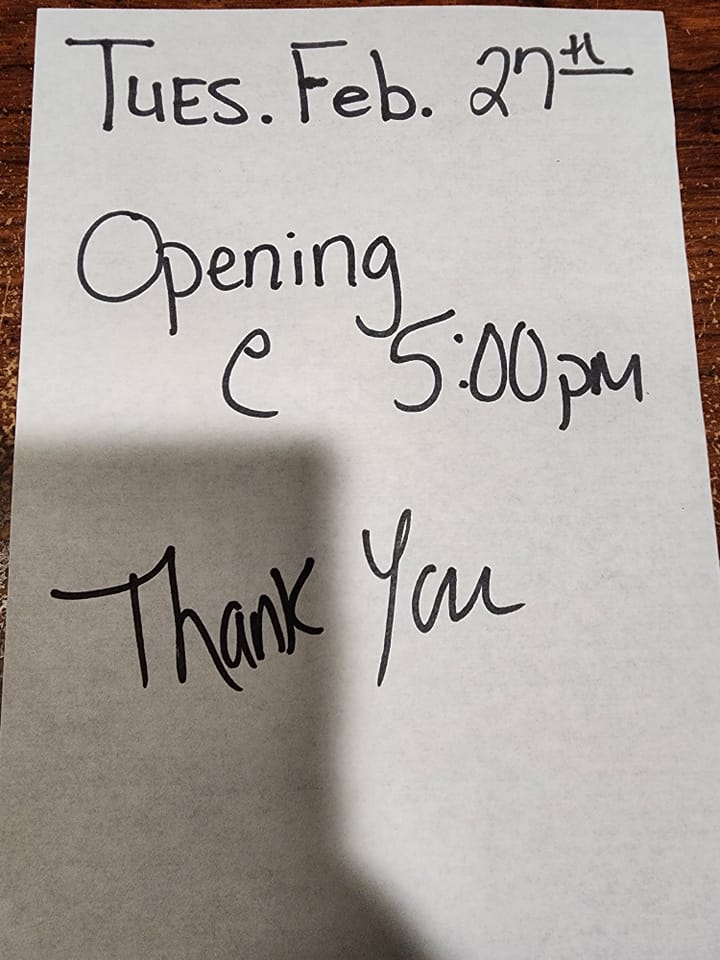 TUES. Feb. 27th
Opening
@ 5:00pm
Thank You